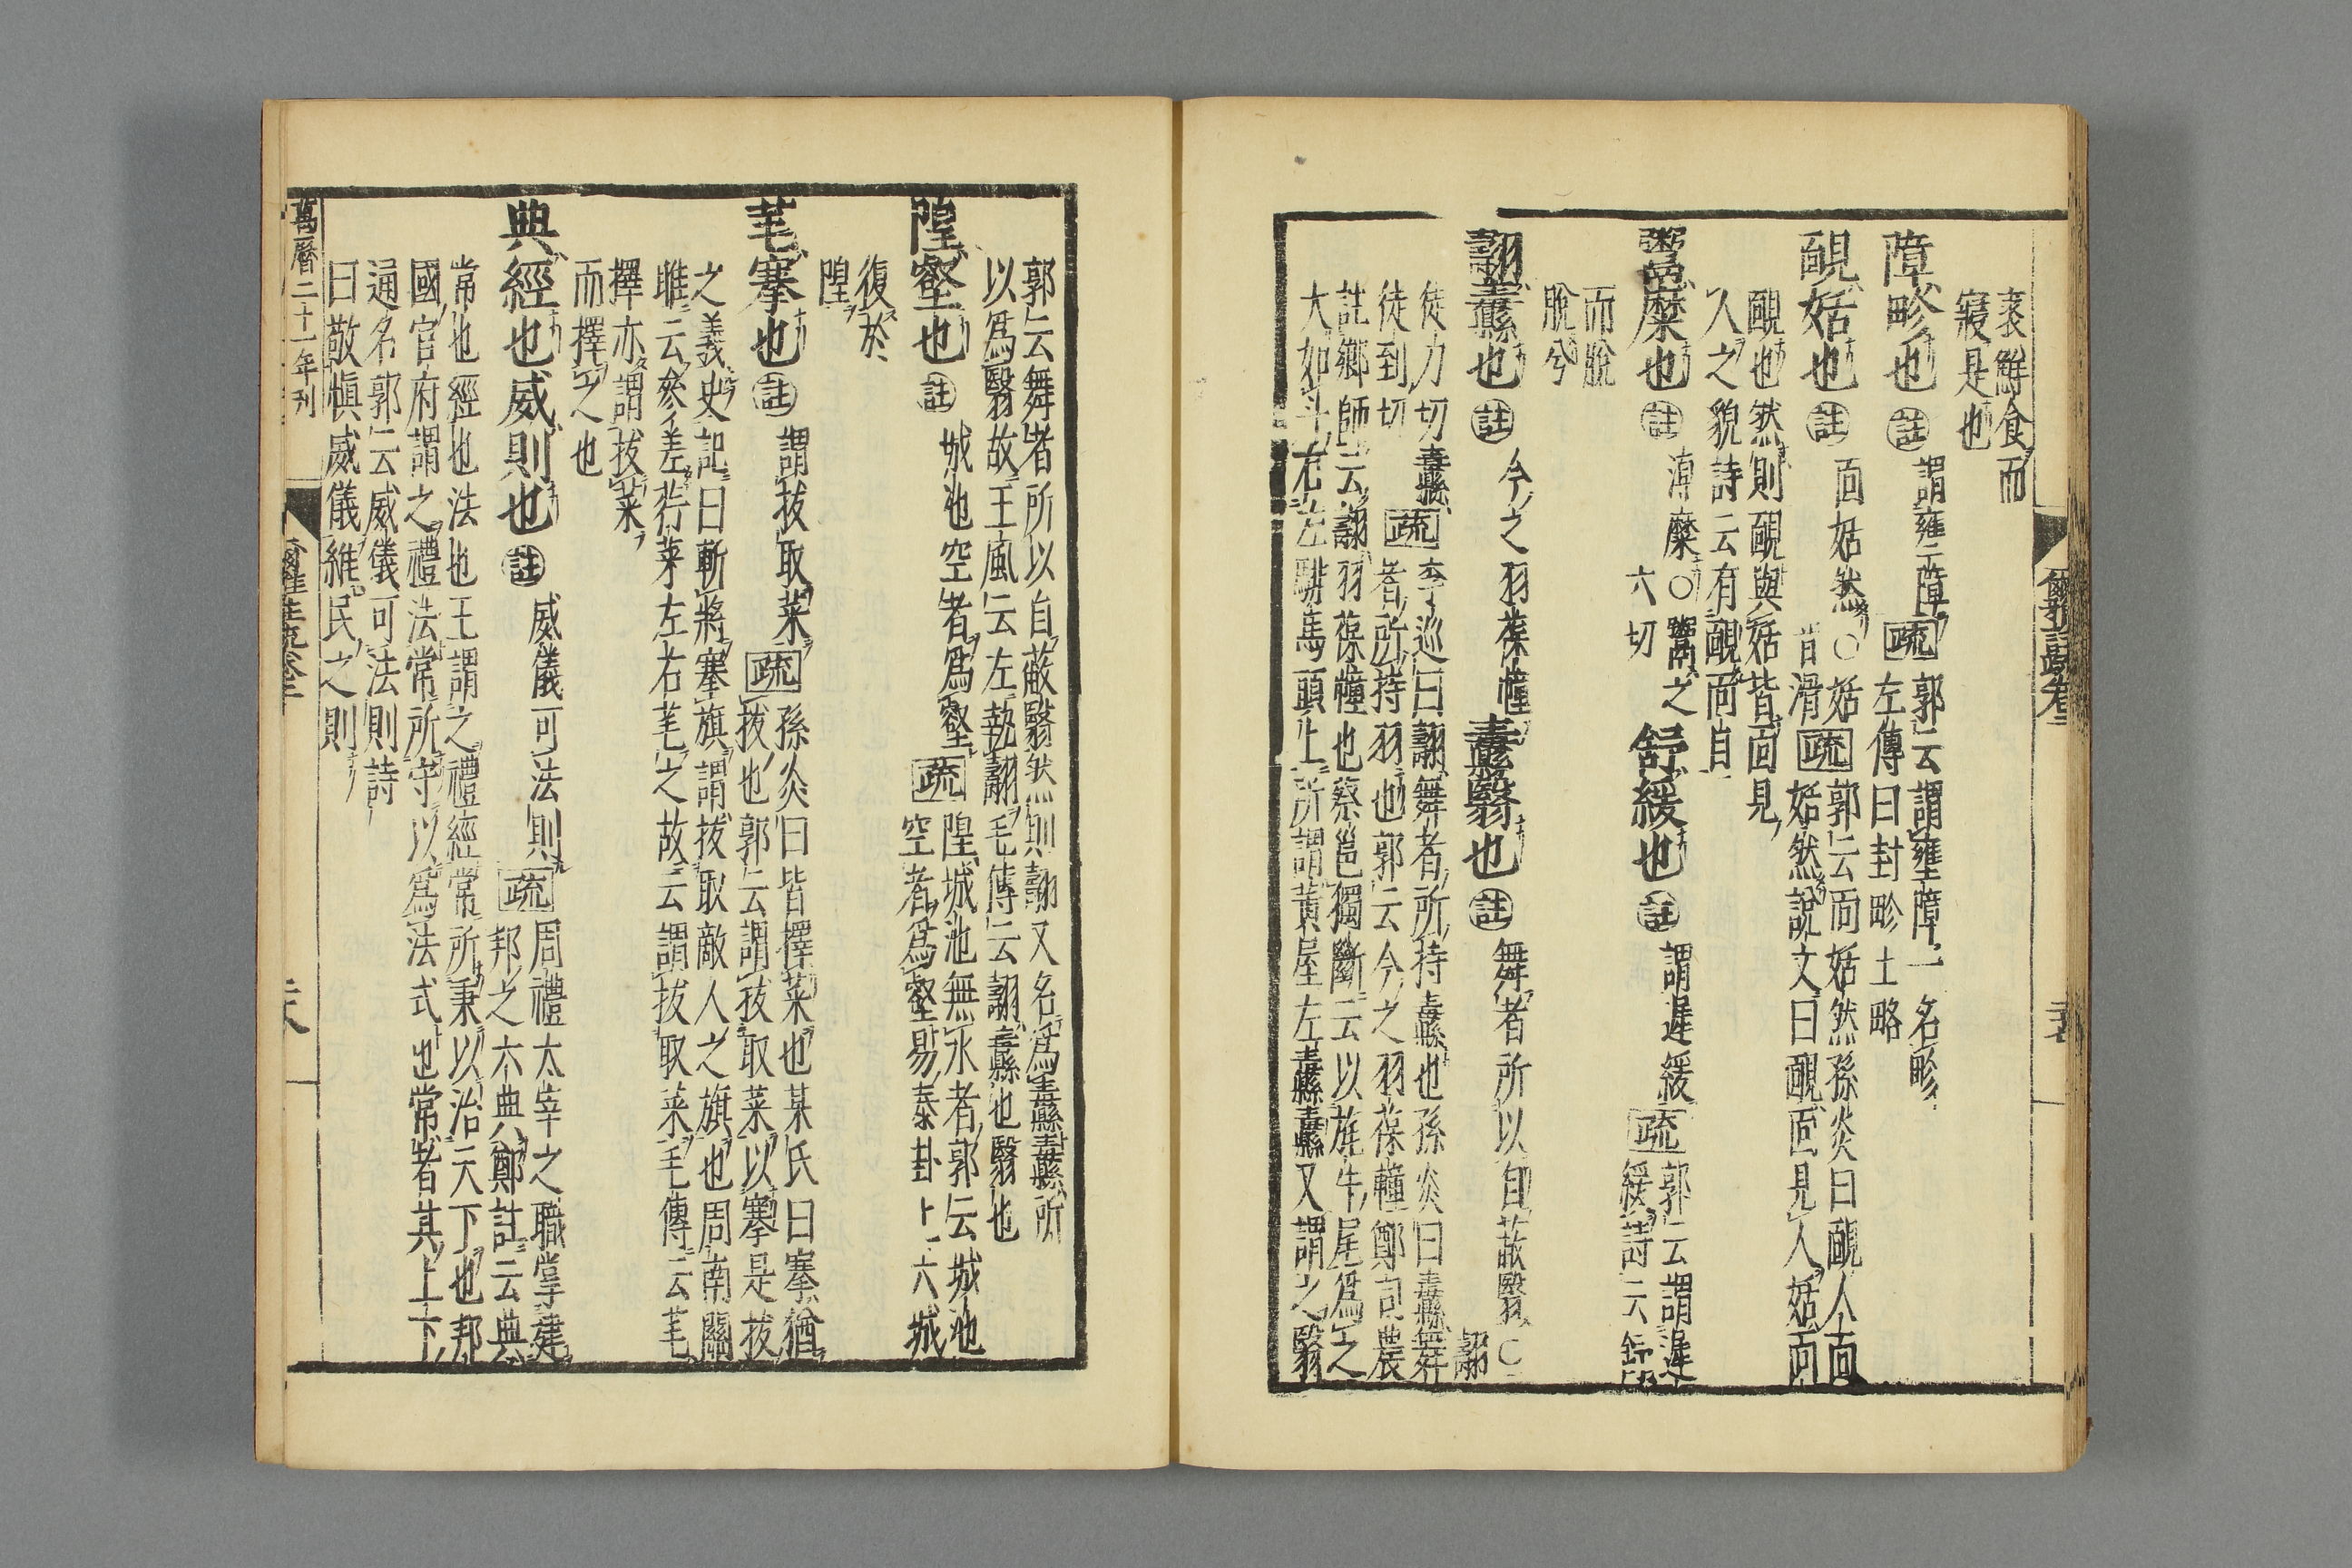 衮鮮食而
寢是也
障畛也 註 謂壅障 疏 郭云謂壅障一名畛
左傳曰封畛土略
靦姡也 註 面姡然○姡 疏 郭云面姡然孫炎曰靦人面
滑 姡然說文曰靦面見人姡面
靦也然則靦與姡皆面見
人之貌詩云有靦面自
鬻糜也 註 淖糜○鬻之
六切
舒緩也 註 謂遲緩 疏 郭云謂遲
緩詩云舒
而脫
脫兮
翿纛也 註 今之羽葆幢
纛翳也 註 舞者所以自蔽翳○
翿
徒力切纛
徒到切
疏 李巡曰翿舞者所持纛也孫炎曰纛舞
者所持羽也郭云今之羽葆幢鄭司農
註鄉師云翿羽葆幢也蔡邕獨斷云以旄牛尾爲之
大如斗在左騑馬頭上所謂黃屋左纛纛又謂之翳
爾雅註疏卷二
郭云舞者所以自蔽翳然則翿又名爲纛纛所
以爲翳故王風云左執翿毛傳云翿纛也翳也
隍壑也 註 城池空者爲壑 疏 隍城池無水者郭云城池
空者爲壑易泰卦上六城
復於
隍
芼搴也 註 謂拔取菜 疏 孫炎曰皆擇菜也某氏曰搴猶
拔也郭云謂拔取菜以搴是拔
之義史記曰斬將搴旗謂拔取敵人之旗也周南關
雎云參差荇菜左右芼之故云謂拔取菜毛傳云芼
擇亦謂拔菜
而擇之也
典經也威則也 註 威儀可法則 疏 周禮太宰之職掌建
邦之六典鄭註云典
常也經也法也王謂之禮經常所秉以治天下也邦
國官府謂之禮法常所守以爲法式也常者其上下
通名郭云威儀可法則詩
曰敬慎威儀維民之則
萬曆二十一年刊